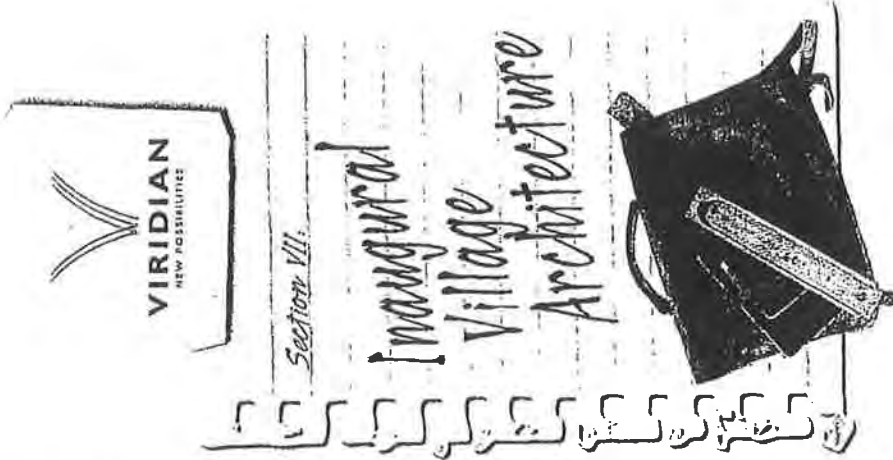 VIRIDIAN
NEW POSSIBILITIES
Section VII.
Inaugural
Village
Architecture